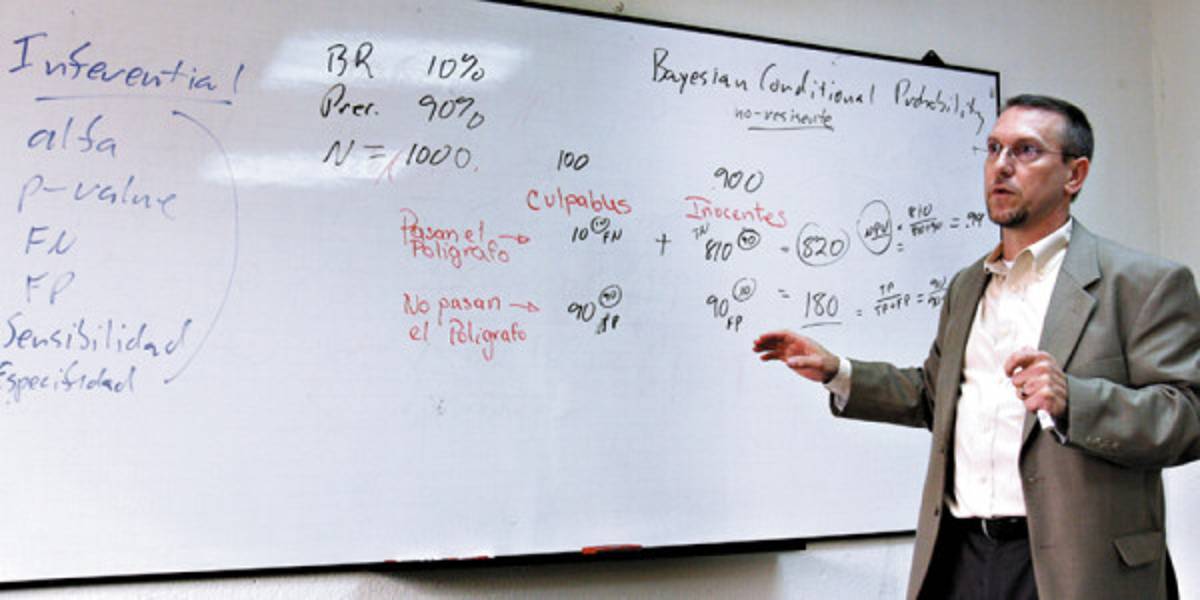 Inferential
alfa
p-value
FN
FP
Sensibilidad
Especifidad
BR 10%
Prec. 90%
N = 1000.
Bayesian Conditional Probability
no-resisente
100
900
Culpabus
Inocentes
Pasan el
Poligrafo → 10 FN + TN 810 90 = 820 NPV = 810 = .99
No pasan
el Poligrafo → 90 90 90 10 FP = 180 = TP / TP+FP = 90